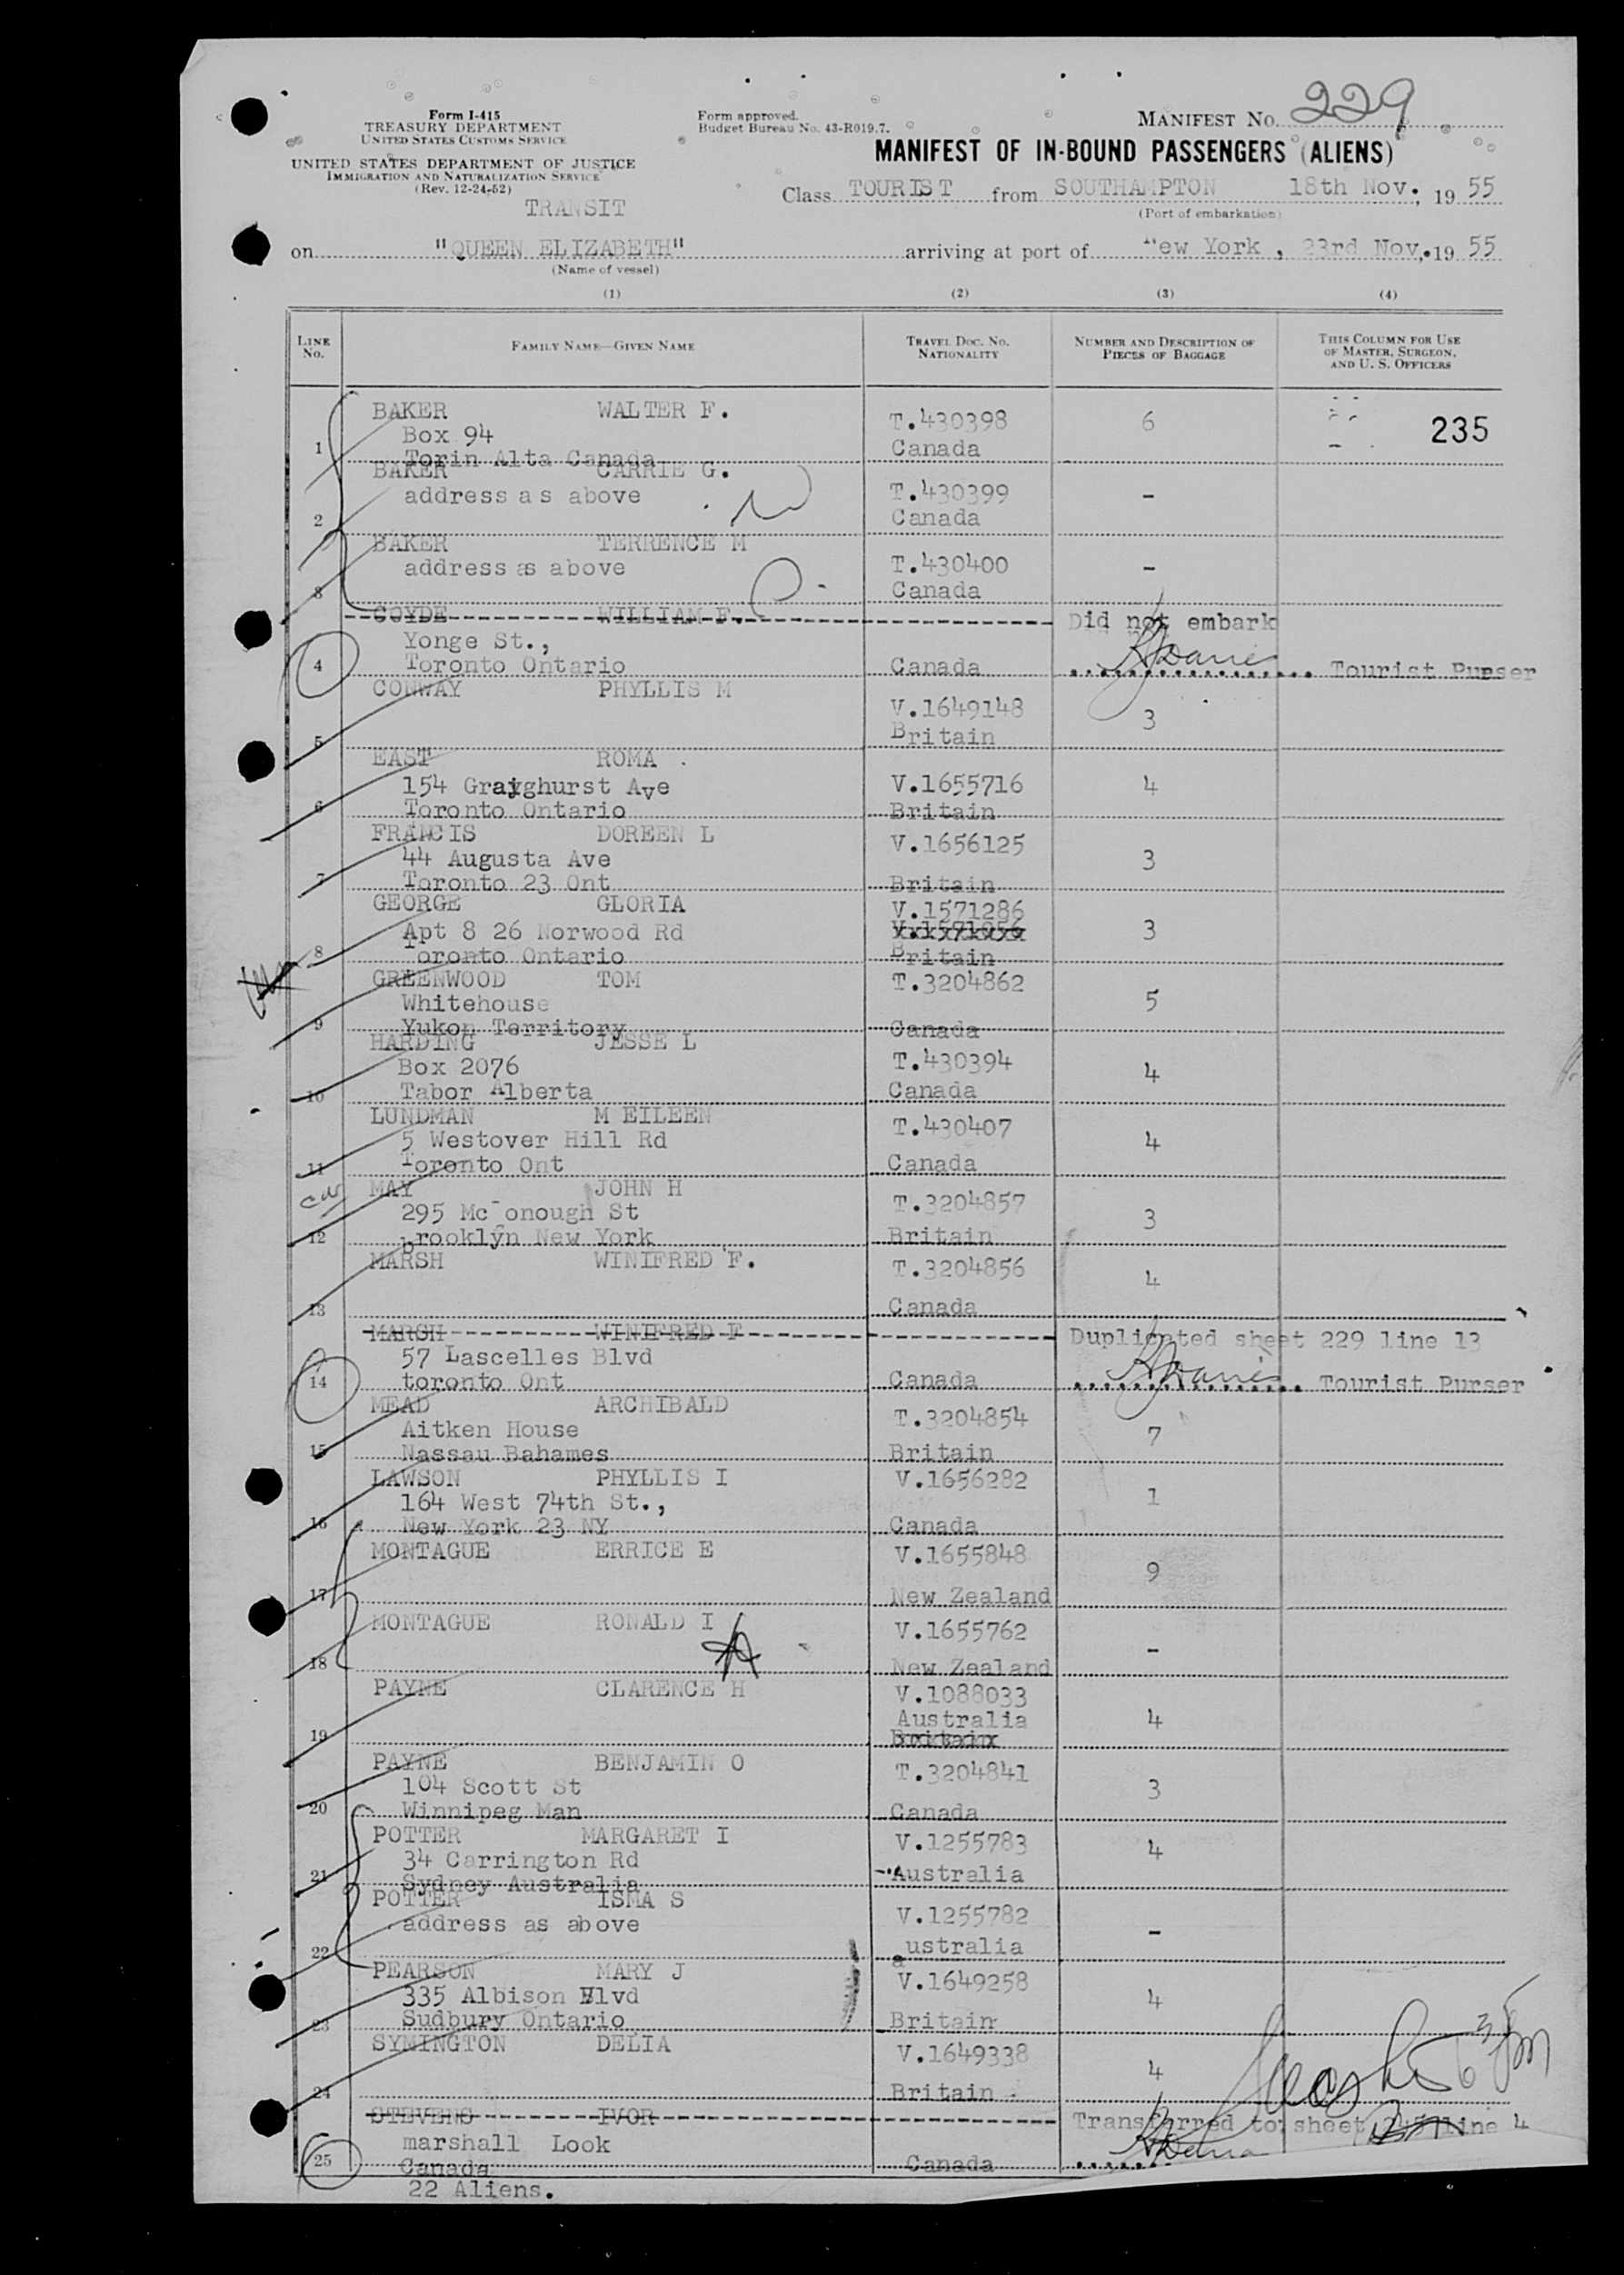 Form I-415
TREASURY DEPARTMENT
UNITED STATES CUSTOMS SERVICE
UNITED STATES DEPARTMENT OF JUSTICE
IMMIGRATION AND NATURALIZATION SERVICE
(Rev. 12-24-52)
TRANSIT
Form approved.
Budget Bureau No. 43-R019.7.
MANIFEST NO. 229
MANIFEST OF IN-BOUND PASSENGERS (ALIENS)
Class TOURIST from SOUTHAMPTON 18th Nov., 19 55
(Port of embarkation)
on "QUEEN ELIZABETH" arriving at port of New York , 23rd Nov,.19 55
(Name of vessel)
(1) (2) (3) (4)
LINE No. FAMILY NAME—GIVEN NAME TRAVEL DOC. NO. NATIONALITY NUMBER AND DESCRIPTION OF PIECES OF BAGGAGE THIS COLUMN FOR USE OF MASTER, SURGEON, AND U. S. OFFICERS
BAKER WALTER F. T.430398 6 235
Box 94
1 Torin Alta Canada Canada
BAKER CARRIE G.
address as above T.430399 -
2 Canada
BAKER TERRENCE M
address as above T.430400 -
3 Canada
COYDE WILLIAM F. Did not embark
Yonge St.,
4 Toronto Ontario Canada Tourist Purser
CONWAY PHYLLIS M
V.1649148 3
5 Britain
EAST ROMA .
154 Grayghurst Ave V.1655716 4
6 Toronto Ontario Britain
FRANCIS DOREEN L V.1656125
44 Augusta Ave 3
7 Toronto 23 Ont Britain
GEORGE GLORIA V.1571286
Apt 8 26 Norwood Rd V.1571056 3
8 Toronto Ontario Britain
GREENWOOD TOM T.3204862
Whitehouse 5
9 Yukon Territory Canada
HARDING JESSE L
Box 2076 T.430394 4
10 Tabor Alberta Canada
LUNDMAN M EILEEN T.430407
5 Westover Hill Rd 4
11 Toronto Ont Canada
MAY JOHN H T.3204857
295 Mc onough St 3
12 brooklyn New York Britain
MARSH WINIFRED F. T.3204856
4
13 Canada
MARSH WINIFRED F Duplicated sheet 229 line 13
57 Lascelles Blvd
14 toronto Ont Canada Tourist Purser
MEAD ARCHIBALD T.3204854
Aitken House 7
15 Nassau Bahames Britain
LAWSON PHYLLIS I V.1656282
164 West 74th St., 1
16 New York 23 NY Canada
MONTAGUE ERRICE E V.1655848
9
17 New Zealand
MONTAGUE RONALD I V.1655762
-
18 New Zealand
PAYNE CLARENCE H V.1088033
Australia 4
19 Britain
PAYNE BENJAMIN O T.3204841
104 Scott St 3
20 Winnipeg Man Canada
POTTER MARGARET I V.1255783 4
34 Carrington Rd
21 Sydney Australia Australia
POTTER ISMA S V.1255782
address as above -
22 australia
PEARSON MARY J V.1649258
335 Albison Blvd 4
23 Sudbury Ontario Britain
SYMINGTON DELIA V.1649338
4
24 Britain
STEVENS IVOR Transferred to sheet line 4
marshall Look
25 Canada Canada
22 Aliens.